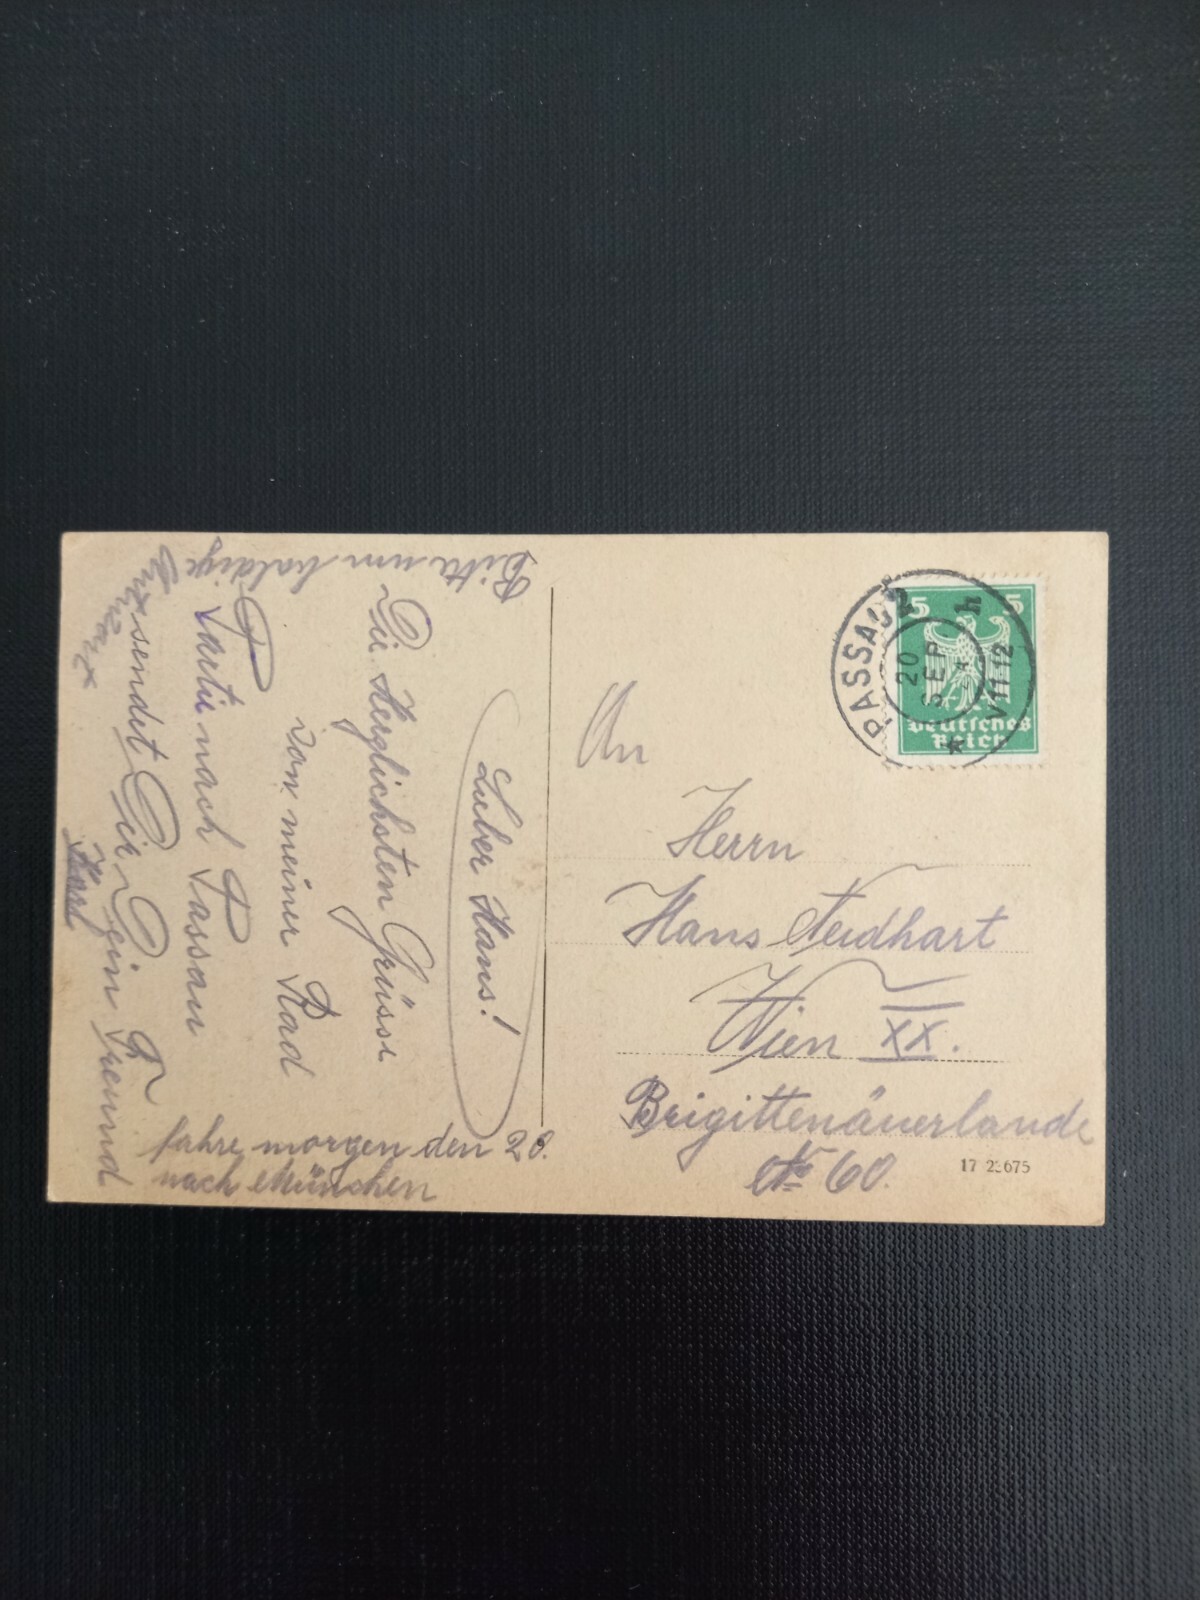 Lieber Hans!
Die Herzlichsten Grüsse
von meiner Rad
Partie nach Passau
sendet Dir Dein Freund
Karl
Bitte um baldige
Antwort
fahre morgen den 20.
nach München
An
Herrn
Hans Neidhart
Wien XX.
Brigittenäuerlände
No 60.
PASSAU 2
20
SEP
V 11-12
h
5 5
Deutsches
Reich